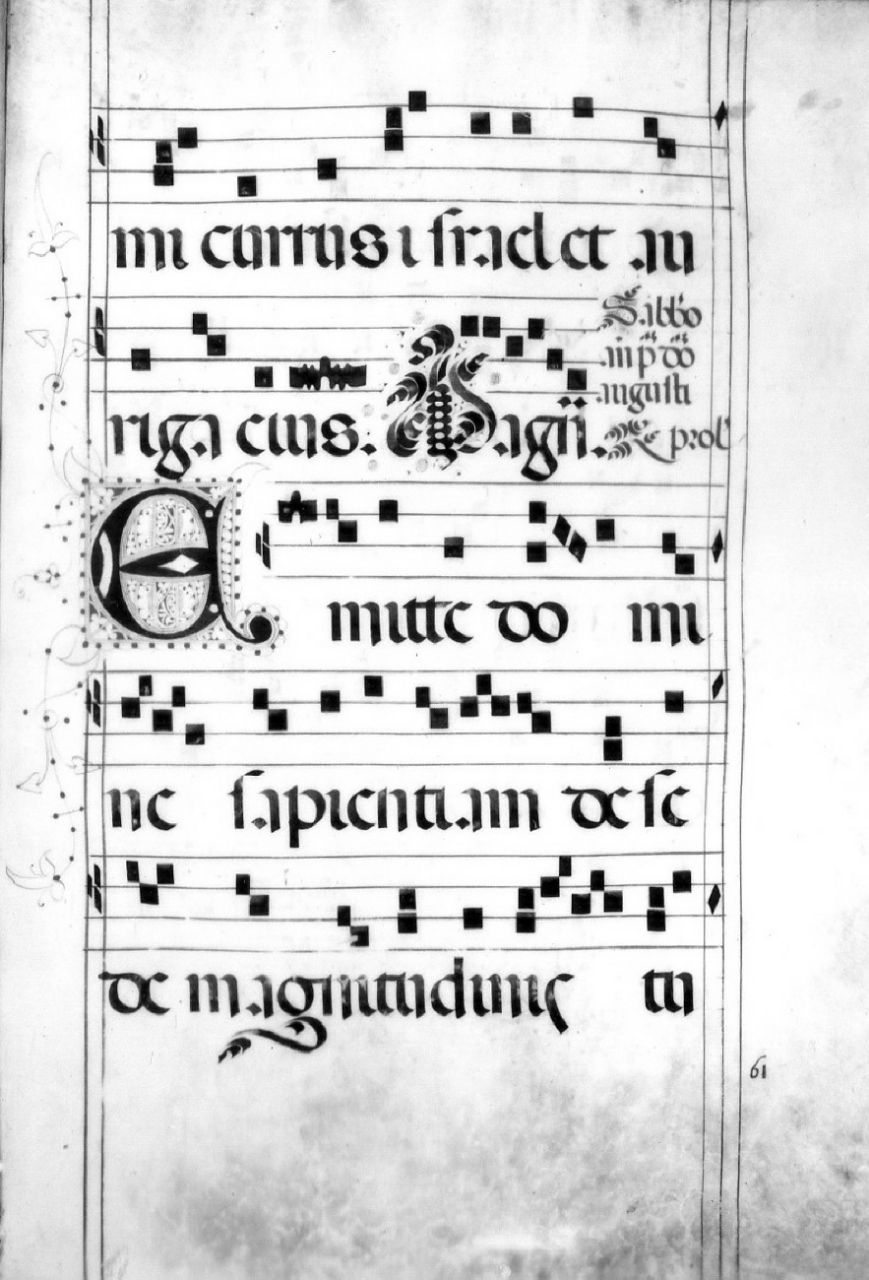 mi currus israel et au
riga eius. Magñ.
Sabbo
in p̃ dõ
augusti
℟ prob
Emitte do mi
ne sapientiam de se
de magnitudinis tu
61